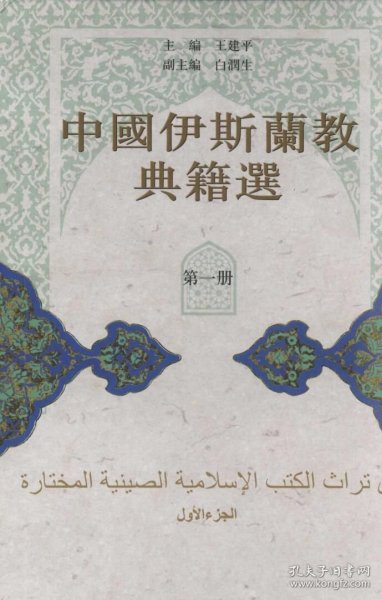 主編 王建平
副主編 白潤生
中國伊斯蘭教
典籍選
第一册
تراث الكتب الإسلامية الصينية المختارة
الجزء الأول
孔夫子旧书网
www.kongfz.com